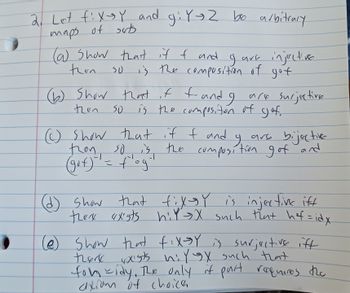 2. Let f: X→Y and g: Y→Z be arbitrary
maps of sets
(a) Show that if f and g are injective
then so is the composition of g∘f
(b) Show that if f and g are surjective
then so is the composition of g∘f.
(c) Show that if f and g are bijective
then so is the composition g∘f and
(g∘f)⁻¹ = f⁻¹∘g⁻¹
(d) Show that f: X→Y is injective iff
there exists h: Y→X such that h∘f = idx
(e) Show that f: X→Y is surjective iff
there exists h: Y→X such that
f∘h = idy. The only if part requires the
axiom of choice.